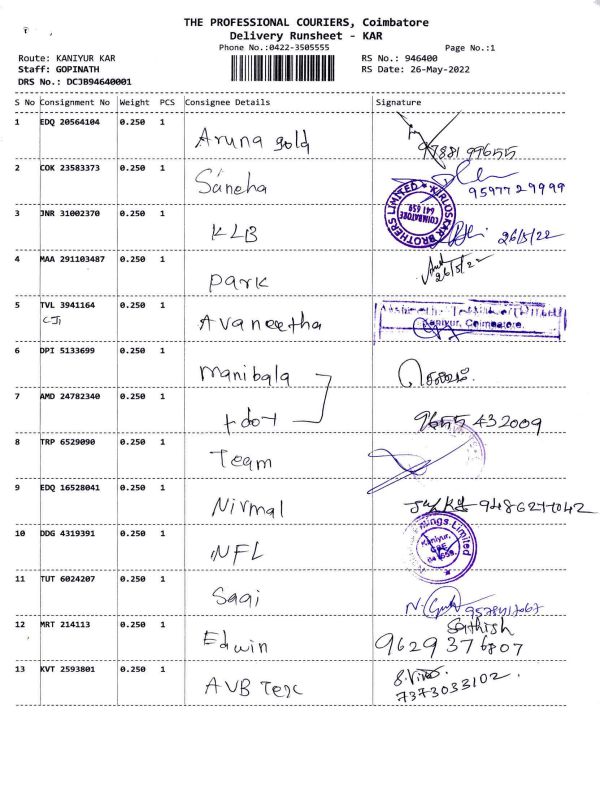 THE PROFESSIONAL COURIERS, Coimbatore
Delivery Runsheet - KAR
Phone No.:0422-3505555 Page No.:1
Route: KANIYUR KAR RS No.: 946400
Staff: GOPINATH RS Date: 26-May-2022
DRS No.: DCJB94640001
S No Consignment No Weight PCS Consignee Details Signature
1 EDQ 20564104 0.250 1
Aruna gold 97881 99655
2 COK 23583373 0.250 1
Saneha 9597729999
KIRLOSKAR BROTHERS LIMITED COIMBATORE 641 659
3 JNR 31002370 0.250 1
KLB 26/5/22
4 MAA 291103487 0.250 1
Park 26/5/22
5 TVL 3941164 0.250 1
CJI Avaneetha
Kaniyur, Coimbatore.
6 DPI 5133699 0.250 1
Manibala
7 AMD 24782340 0.250 1
+do+ 9655 432009
8 TRP 6529090 0.250 1
Team
9 EDQ 16528041 0.250 1
Nirmal
10 DDG 4319391 0.250 1
NFL Limited Kaniyur,
11 TUT 6024207 0.250 1
Sagi
12 MRT 214113 0.250 1 Sathish
Edwin 9629376807
13 KVT 2593801 0.250 1
AVB Tex 7373033102.